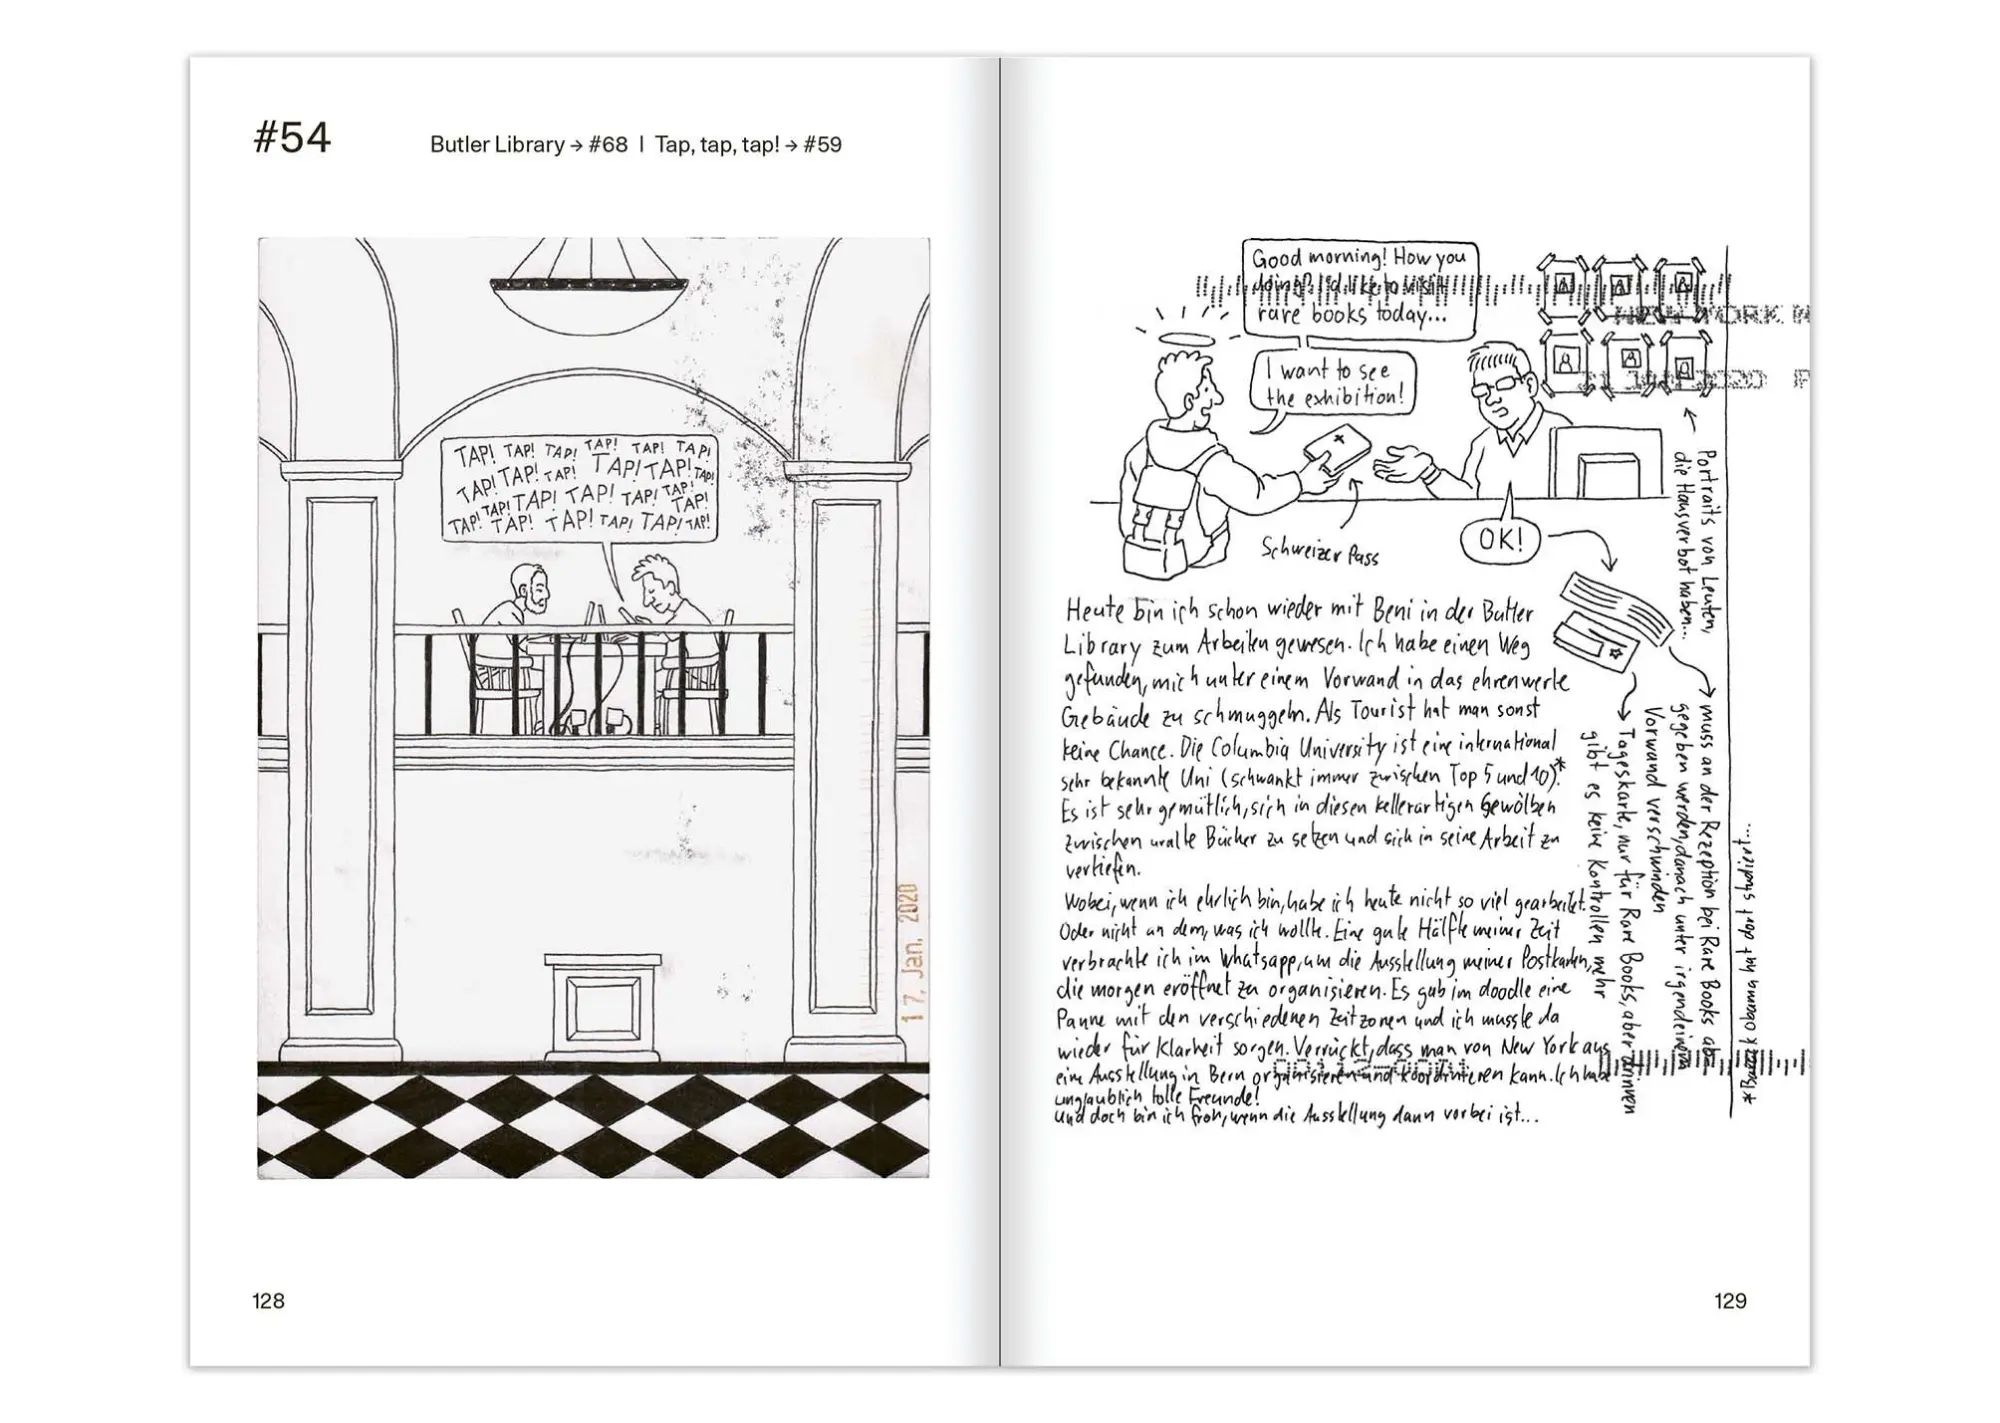 #54
Butler Library → #68 | Tap, tap, tap! → #59
TAP! TAP! TAP! TAP! TAP! TAP!
TAP! TAP! TAP! TAP! TAP! TAP!
TAP! TAP! TAP! TAP! TAP! TAP! TAP!
TAP! TAP! TAP! TAP! TAP! TAP!
17. Jan. 2020
128
Good morning! How you
doing? I'd like to visit
rare books today...
I want to see
the exhibition!
Schweizer Pass
OK!
NEW YORK
2020
Portraits von Leuten,
die Hausverbot haben...
Heute bin ich schon wieder mit Beni in der Butler
Library zum Arbeiten gewesen. Ich habe einen Weg
gefunden, mich unter einem Vorwand in das ehrenwerte
Gebäude zu schmuggeln. Als Tourist hat man sonst
keine Chance. Die Columbia University ist eine international
sehr bekannte Uni (schwankt immer zwischen Top 5 und 10).*
Es ist sehr gemütlich, sich in diesen kellerartigen Gewölben
zwischen uralte Bücher zu setzen und sich in seine Arbeit zu
vertiefen.
Wobei, wenn ich ehrlich bin, habe ich heute nicht so viel gearbeitet.
Oder nicht an dem, was ich wollte. Eine gute Hälfte meiner Zeit
verbrachte ich im Whatsapp, um die Ausstellung meiner Postkarten,
die morgen eröffnet zu organisieren. Es gab im doodle eine
Panne mit den verschiedenen Zeitzonen und ich musste da
wieder für Klarheit sorgen. Verrückt, dass man von New York aus
eine Ausstellung in Bern organisieren und koordinieren kann. Ich habe
unglaublich tolle Freunde!
Und doch bin ich froh, wenn die Ausstellung dann vorbei ist...
muss an der Rezeption bei Rare Books ab-
gegeben werden, danach unter irgendeinem
Vorwand verschwinden
Tageskarte, nur für Rare Books, aber drinnen
gibt es keine Kontrollen mehr
*Barack Obama hat dort studiert...
129